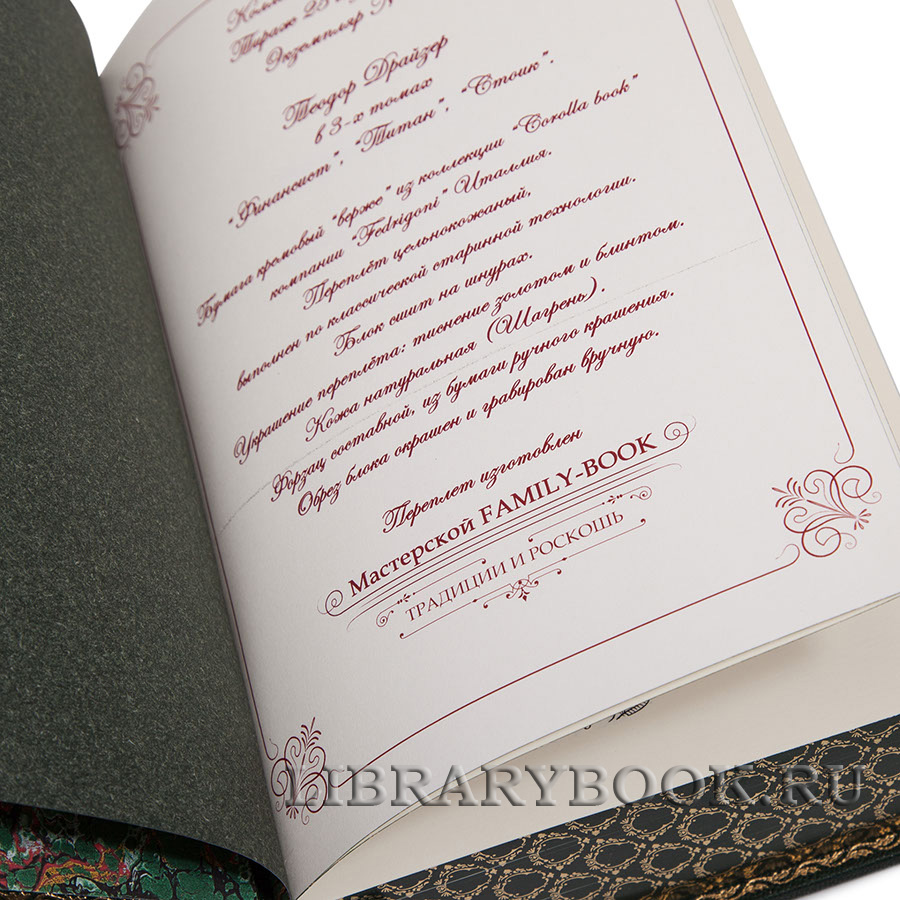 Тираж 25
Экземпляр
Теодор Драйзер
в 3-х томах
"Финансист", "Титан", "Стоик".
Бумага кремовый "верже" из коллекции "Corolla book"
компании "Fedrigoni" Италлия.
Переплёт цельнокожаный,
выполнен по классической старинной технологии.
Блок сшит на шнурах.
Украшение переплёта: тиснение золотом и блинтом.
Кожа натуральная (Шагрень).
Форзац составной, из бумаги ручного крашения.
Обрез блока окрашен и гравирован вручную.
Переплет изготовлен
Мастерской FAMILY-BOOK
ТРАДИЦИИ И РОСКОШЬ
LIBRARYBOOK.RU